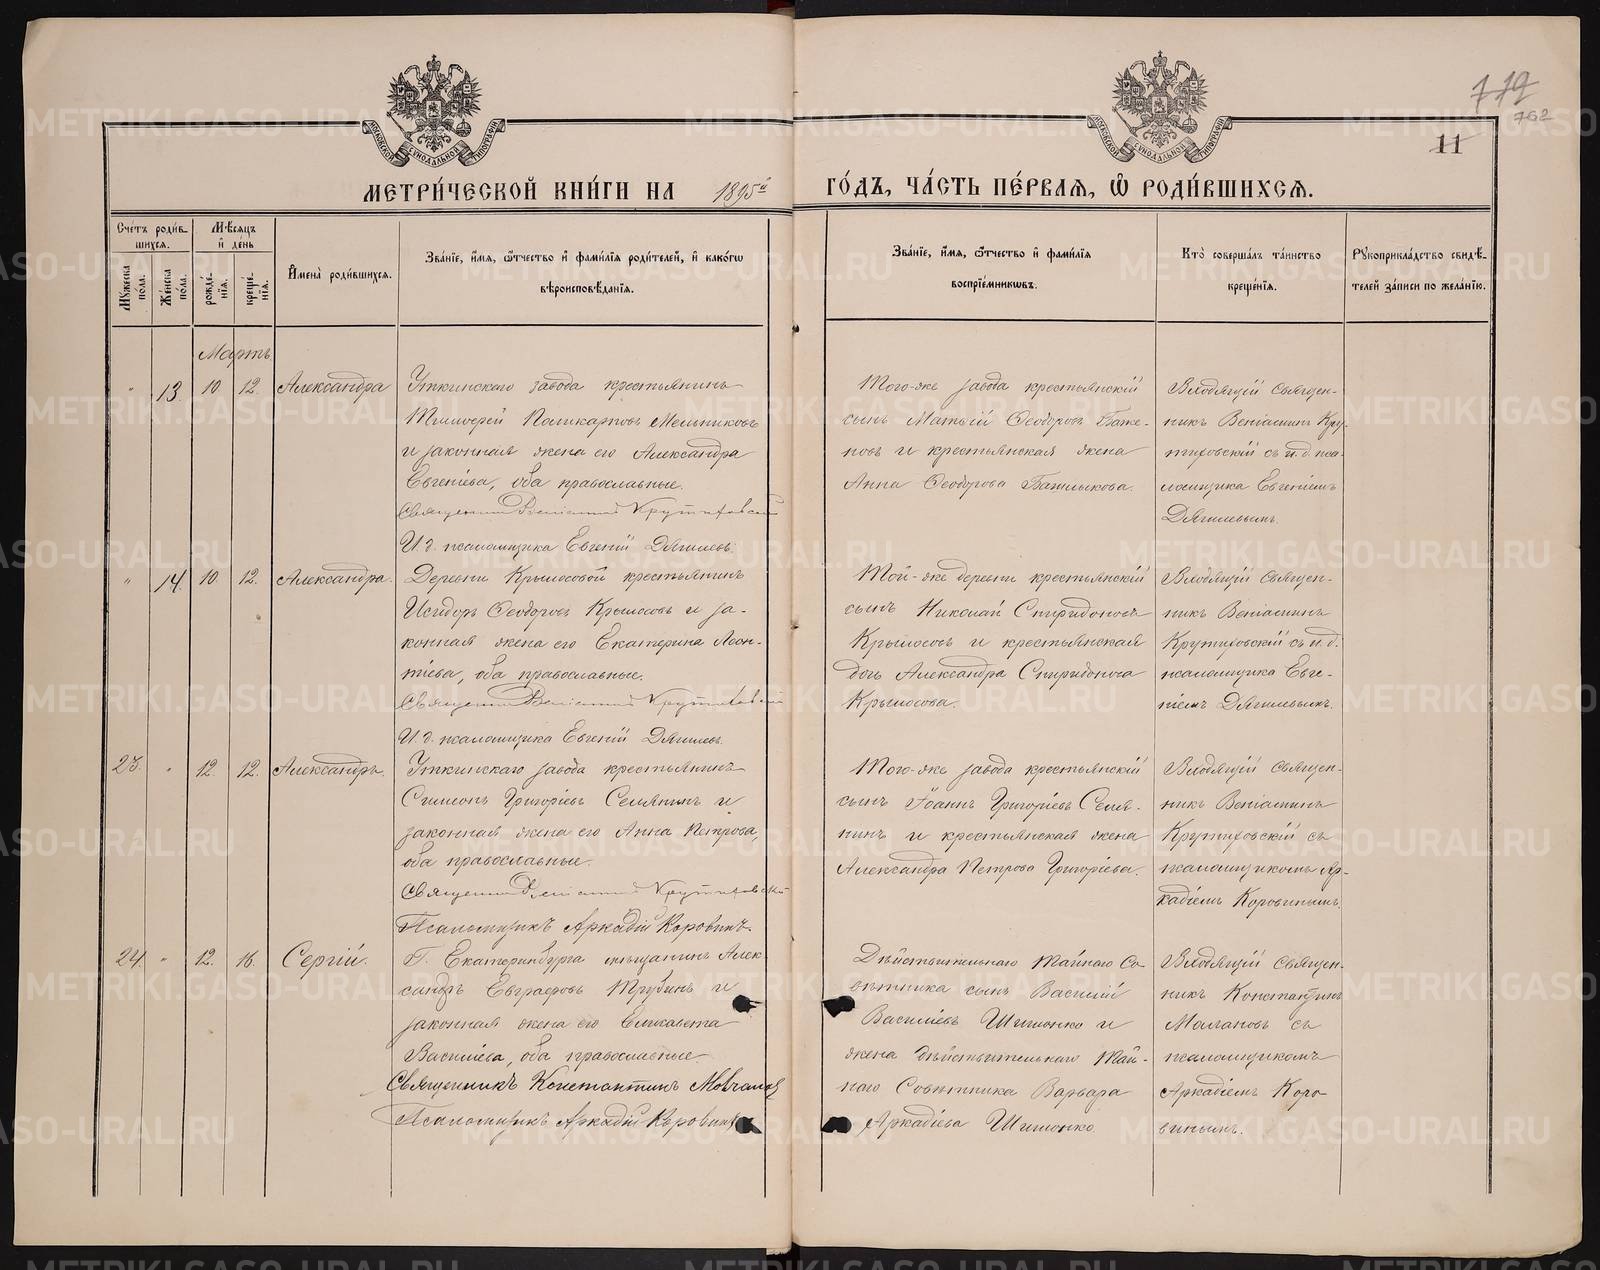 МОСКОВСКОЙ СѴНОДАЛЬНОЙ ТИПОГРАФІИ
МОСКОВСКОЙ СѴНОДАЛЬНОЙ ТИПОГРАФІИ
762
11
МЕТРИ́ЧЕСКОЙ КНИ́ГИ НА 1895й ГО́ДЪ, ЧА́СТЬ ПЕ́РВАЯ, Ѡ РОДИ́ВШИХСЯ.
Сче́тъ роди́в-
шихся.
Му́жеска по́ла.
Же́нска по́ла.
Мѣ́сяцъ
и де́нь
рожде́-
нїя.
креще́-
нїя.
И҆мена̀ роди́вшихся.
Зва́нїе, и҆́мя, ѻ҆́тчество и҆ фами́лїя роди́телей, и҆ како́гѡ
вѣроисповѣ́данїя.
Зва́нїе, и҆́мя, ѻ҆́тчество и҆ фами́лїя
воспрїе́мникѡвъ.
Кто̀ соверша́лъ та́инство
креще́нїя.
Рукоприкла́дство свидѣ́-
телей за́писи по жела́нїю.
Мартъ.
" 13. 10. 12. Александра
Уткинскаго завода крестьянинъ
Тимоѳей Поликарповъ Мельниковъ
и законная жена его Александра
Евгеніева, оба православные.
Священникъ Веніаминъ Крутиховскій
И. д. псаломщика Евгеній Дягилевъ.
Того-же завода крестьянскій
сынъ Матѳій Ѳеодоровъ Баже-
новъ и крестьянская жена
Анна Ѳеодорова
Владящій священ-
никъ Веніаминъ Кру-
тиховскій съ и. д. пса-
ломщика Евгеніемъ
Дягилевымъ.
" 14. 10. 12. Александра.
Деревни Крылосовой крестьянинъ
Исидоръ Ѳеодоровъ Крылосовъ и за-
конная жена его Екатерина Леон-
тіева, оба православные.
Священникъ Веніаминъ Крутиховскій
И. д. псаломщика Евгеній Дягилевъ.
Той-же деревни крестьянскій
сынъ Николай Спиридоновъ
Крылосовъ и крестьянская
дочь Александра Спиридонова
Крылосова.
Владящій священ-
никъ Веніаминъ
Крутиховскій съ и. д.
псаломщика Евге-
ніемъ Дягилевымъ.
23. " 12. 12. Александръ.
Уткинскаго завода крестьянинъ
Симеонъ Григоріевъ Селянинъ и
законная жена его Анна Петрова,
оба православные.
Священникъ Веніаминъ Крутиховскій
Псаломщикъ Аркадій Коровинъ.
Того-же завода крестьянскій
сынъ Іоаннъ Григоріевъ Селя-
нинъ и крестьянская жена
Александра Петрова Григоріева.
Владящій священ-
никъ Веніаминъ
Крутиховскій съ
псаломщикомъ Ар-
кадіемъ Коровинымъ.
24. " 12. 16. Сергій.
Г. Екатеринбурга мѣщанинъ Алек-
сандръ Евграфовъ Трубинъ и
законная жена его Елизавета
Васильева, оба православные.
Священникъ Константинъ
Псаломщикъ Аркадій Коровинъ
Дѣйствительнаго Тайнаго Со-
вѣтника сынъ Василій
Васильевъ Шишонко и
жена дѣйствительнаго Тай-
наго Совѣтника Варвара
Аркадіева Шишонко.
Владящій священ-
никъ Константинъ
съ
псаломщикомъ
Аркадіемъ Коро-
винымъ.
METRIKI.GASO-URAL.RU